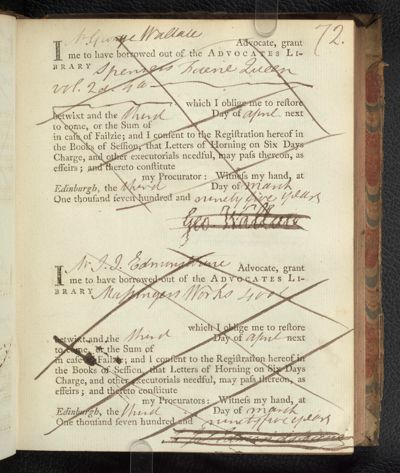 72.
I Mr George Wallace Advocate, grant
me to have borrowed out of the ADVOCATES LI-
BRARY Spensers Faerie Queen
vol. 2d 4to
which I oblige me to restore
betwixt and the third Day of April next
to come, or the Sum of
in case of Failzie; and I consent to the Registration hereof in
the Books of Session, that Letters of Horning on Six Days
Charge, and other executorials needful, may pass thereon, as
effeirs; and thereto constitute
my Procurator: Witness my hand, at
Edinburgh, the third Day of March
One thousand seven hundred and ninety five years
Geo. Wallace
I Mr J. J. Edmonstoune Advocate, grant
me to have borrowed out of the ADVOCATES LI-
BRARY Massingers Works
which I oblige me to restore
betwixt and the third Day of April next
to come, or the Sum of
in case of Failzie; and I consent to the Registration hereof in
the Books of Session, that Letters of Horning on Six Days
Charge, and other executorials needful, may pass thereon, as
effeirs; and thereto constitute
my Procurators: Witness my hand, at
Edinburgh, the third Day of March
One thousand seven hundred and ninety five years